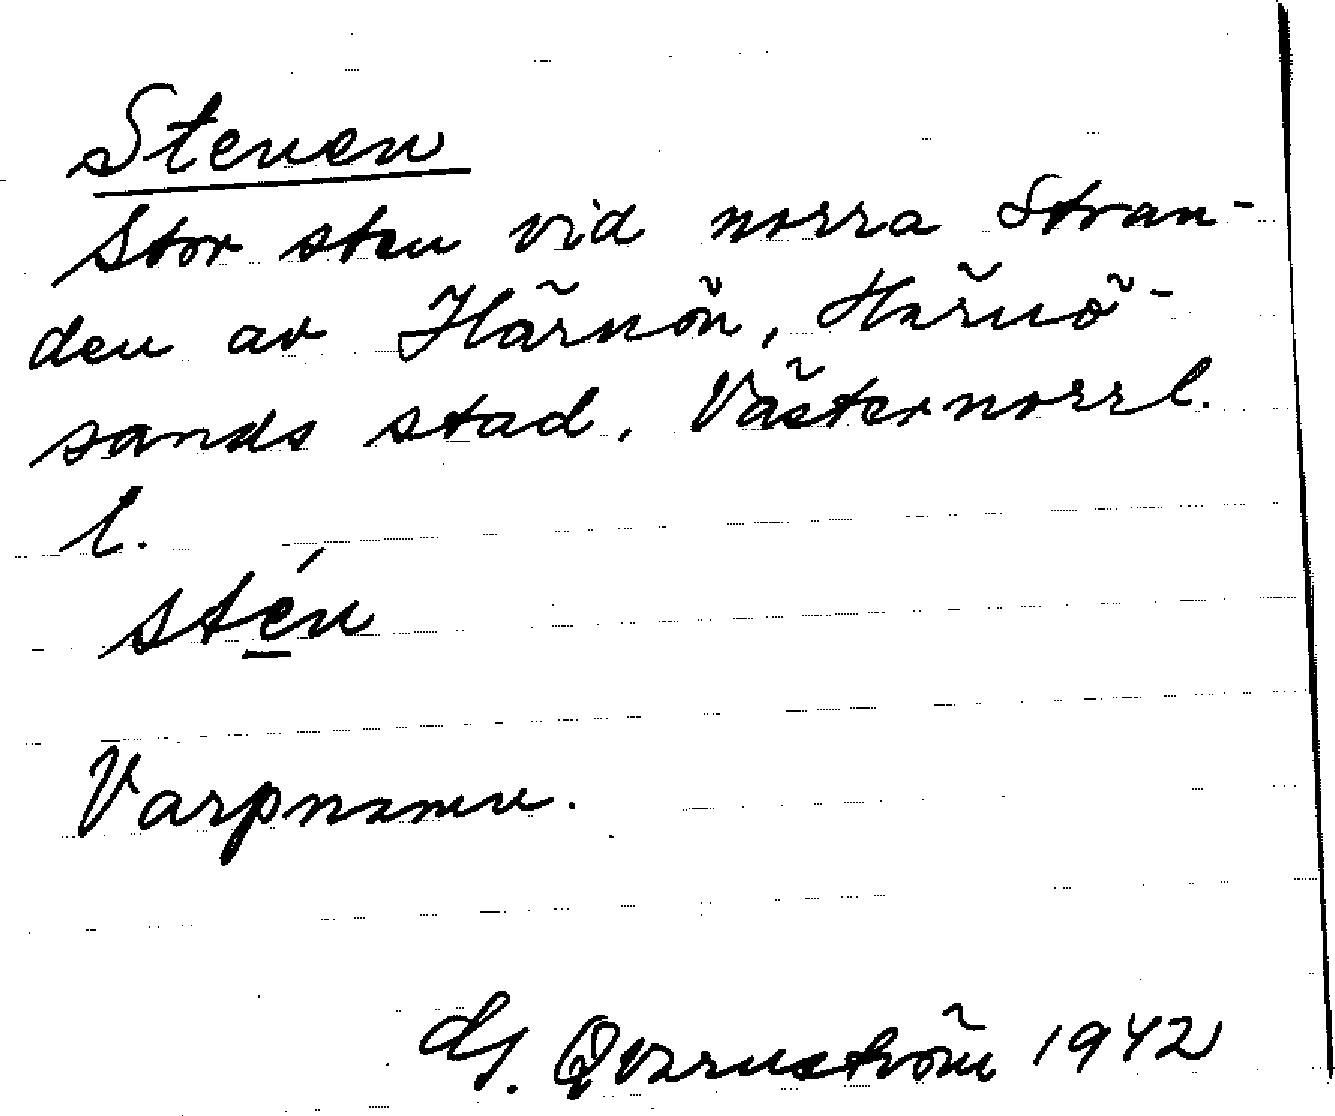 Stenen
Stor sten vid norra Stran-
den av Härnön, Härnö-
sands stad, Västernorrl.
l.
stén
Varpnamn.
G. Qvarnström 1942